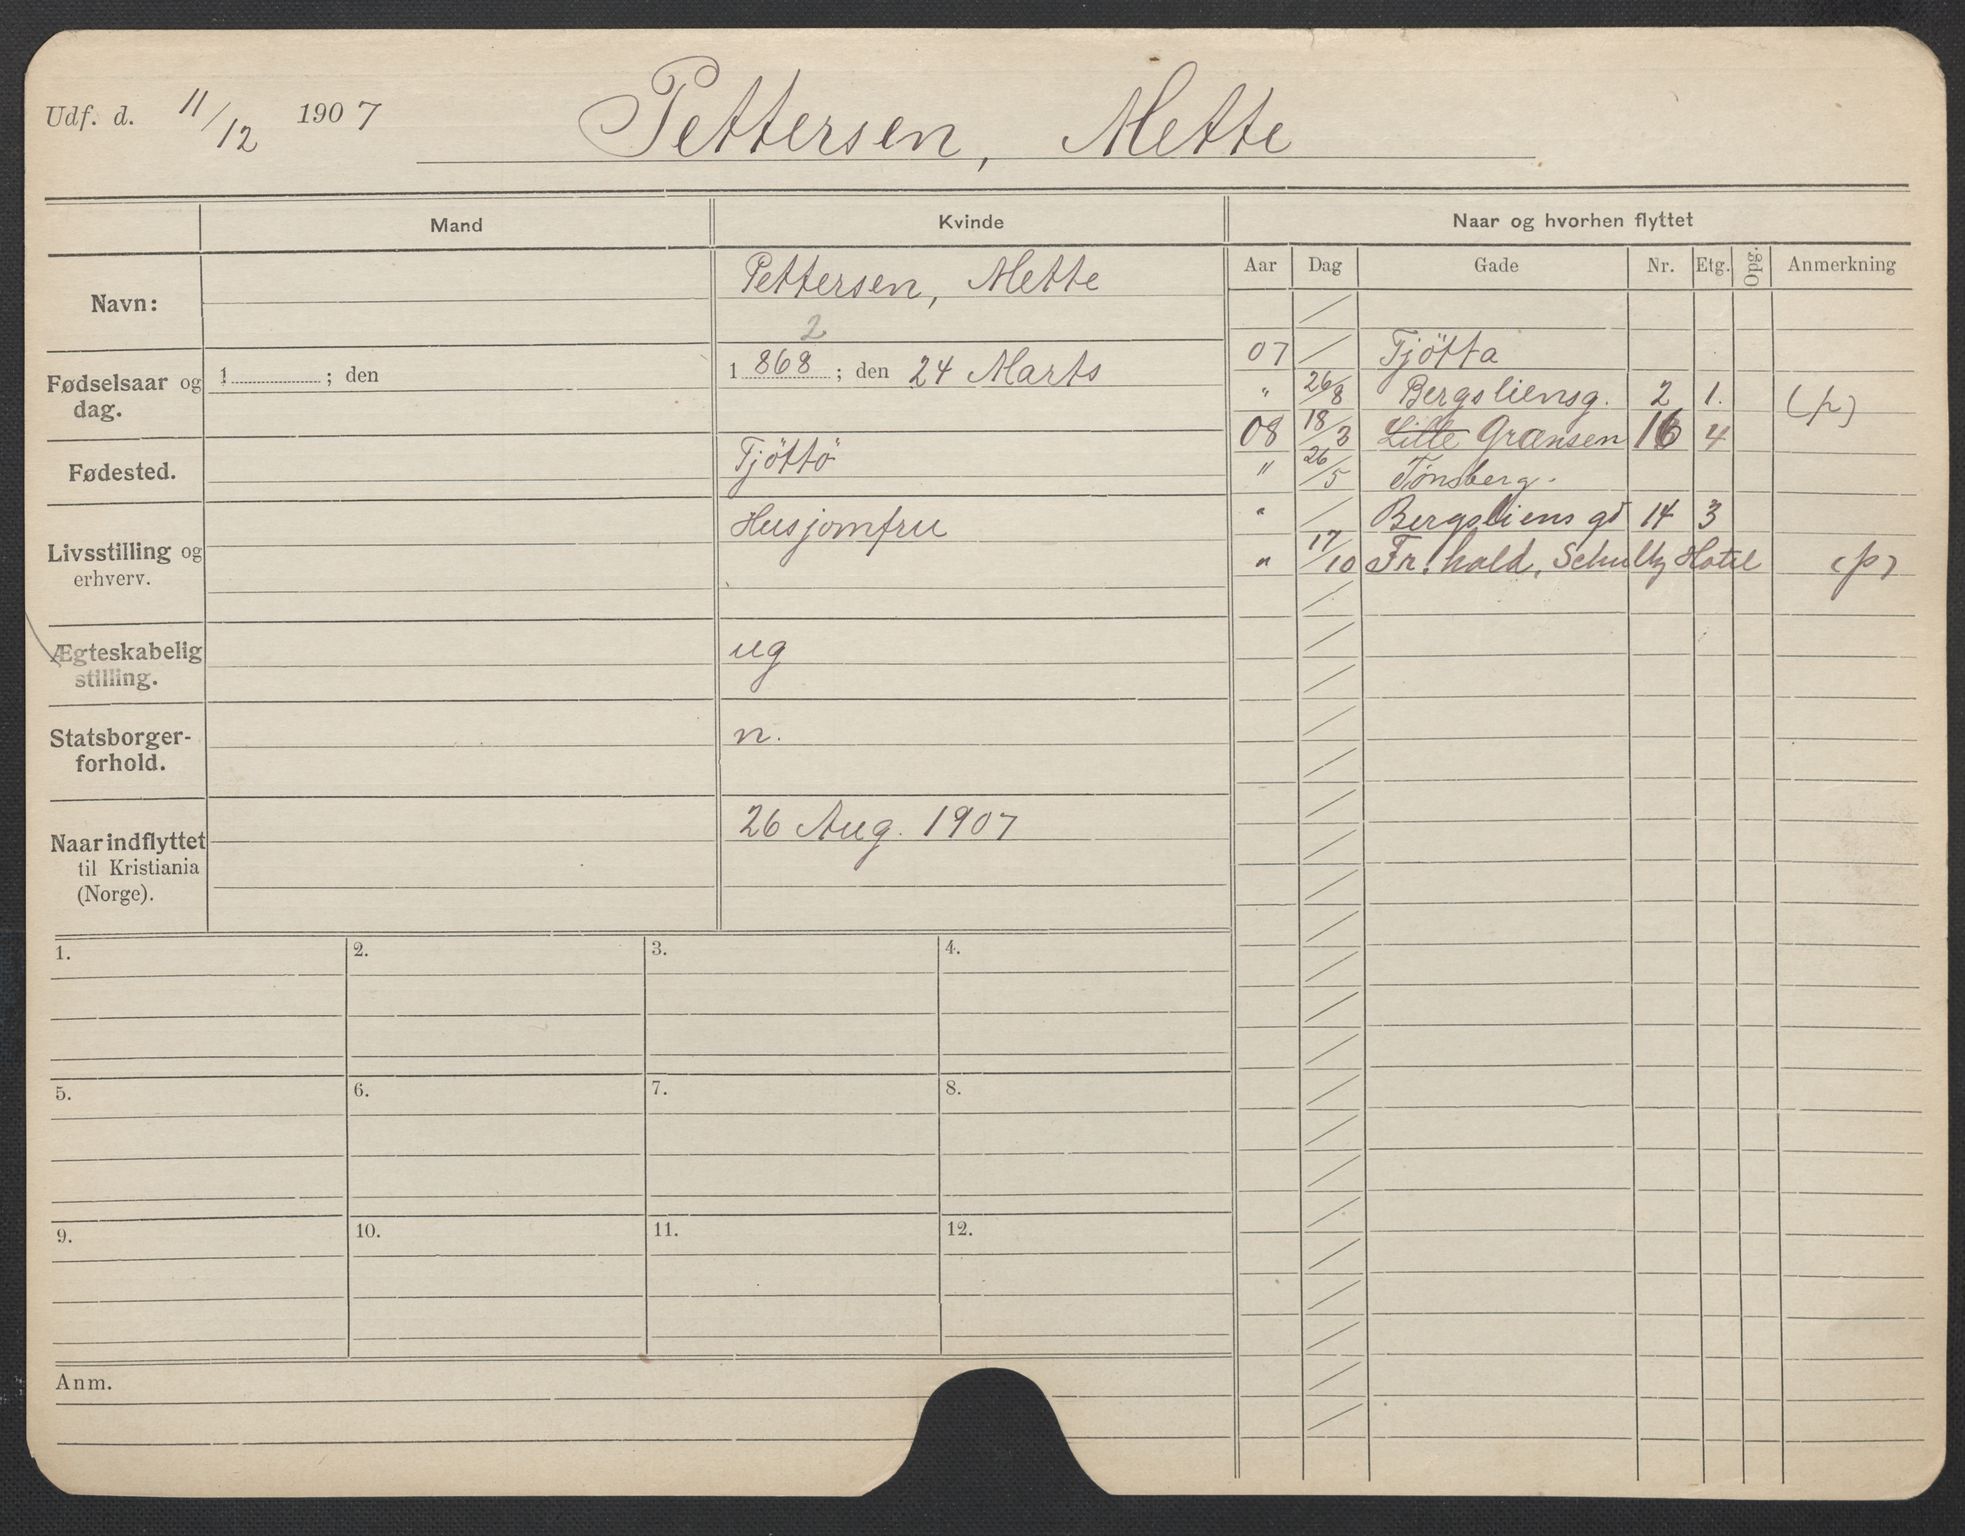 Udf. d. 11/12 1907 Pettersen, Mette
Mand Kvinde Naar og hvorhen flyttet
Aar Dag Gade Nr. Etg. Opg. Anmerkning
Navn: Pettersen, Mette
2
Fødselsaar og dag. 1 ; den 1868 ; den 24 Marts
Fødested. Tjöttö
Livsstilling og erhverv. Husjomfru
Ægteskabelig stilling. ug
Statsborger-forhold. n.
Naar indflyttet til Kristiania (Norge). 26 Aug. 1907
07 Tjötta
" 26/8 Bergsliensg. 2 1. (p)
08 18/3 Lille Grænsen 16 4
" 26/5 Tønsberg.
" Bergsliens gt 14 3
" 17/10 Fr.hald, Hotel (p)
1. 2. 3. 4.
5. 6. 7. 8.
9. 10. 11. 12.
Anm.